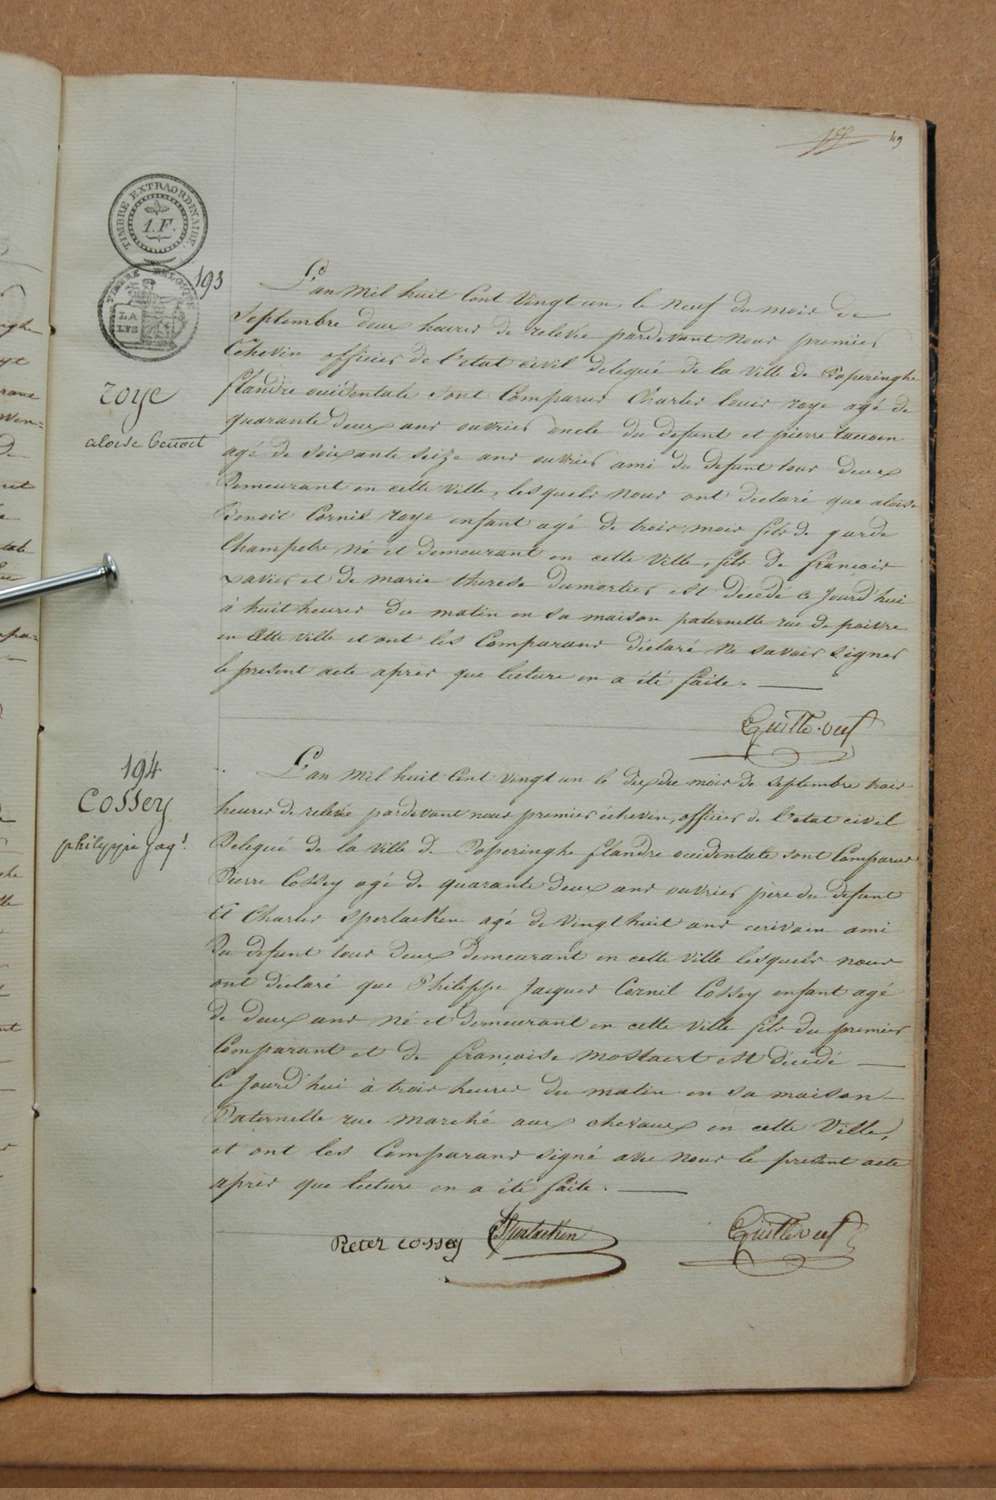 49
TIMBRE EXTRAORDINAIRE
1.F.
TIMBRE BELGIQUE
LA
LYS
193
roye
aloise benoit
L'an mil huit Cent vingt un, le neuf du mois de
Septembre deux heures de relevée pardevant nous premier
Echevin officier de l'etat civil delegué de la ville de Poperinghe
flandre occidentale sont Comparus Charles louis roye agé de
quarante deux ans ouvrier oncle du defunt et pierre
agé de soixante seize ans ouvrier ami du defunt tous deux
Demeurant en cette ville, lesquels nous ont declaré que aloise
Benoit Cornil roye enfant agé de trois mois fils de garde
Champetre né et demeurant en cette ville, fils de françois
xavier et de marie therese dumortier est décédé ce jourd'hui
à huit heures du matin en sa maison paternelle rue de poivre
en Cette ville et ont les Comparans déclaré ne savoir signer
le present acte apres que lecture en a été faite.
194
Cossey
philippe Jaqs.
L'an mil huit Cent vingt un le dix du mois de septembre trois
heures de relevée pardevant nous premier échevin, officier de l'etat civil
Delegué de la ville de Poperinghe flandre occidentale sont Comparus
Pierre Cossey agé de quarante deux ans ouvrier père du defunt
Et Charles Sperlaeken agé de vingt huit ans ecrivain ami
Du defunt tous deux demeurant en cette ville lesquels nous
ont déclaré que Philippe Jacques Cornil Cossey enfant agé
de deux ans né et demeurant en cette ville fils du premier
Comparant et de françoise mostaert est décédé
Ce jourd'hui à trois heures du matin en sa maison
Paternelle rue marché aux chevaux en cette ville,
et ont les Comparans signé avec nous le present acte
apres que lecture en a été faite.
Peter cossey Sperlaeken